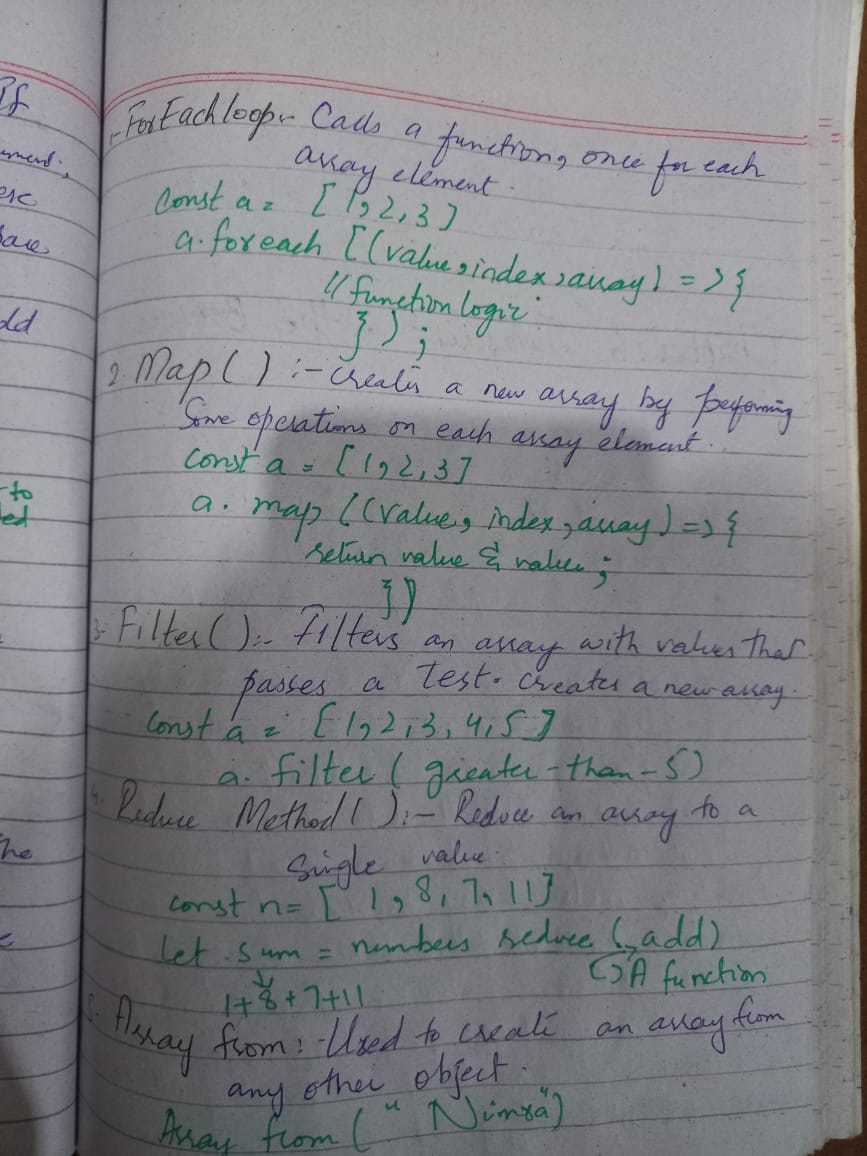 If
1. ForEach loop:- Calls a function, once for each
array element.
const a = [1,2,3]
a.foreach [(value, index, array) => {
// function logic
});
2. Map() :- creates a new array by performing
Some operations on each array element.
const a = [1,2,3]
a. map ((value, index, array) => {
return value & value;
})
3. Filter() :- Filters an array with values that
passes a test. creates a new array.
const a = [1,2,3,4,5]
a. filter (greater-than-5)
4. Reduce Method() :- Reduce an array to a
single value.
const n= [1,8,7,11]
let sum = numbers reduce (add)
A function
1+8+7+11
5. Array from :- Used to create an array from
any other object.
Array from ("Nimra")